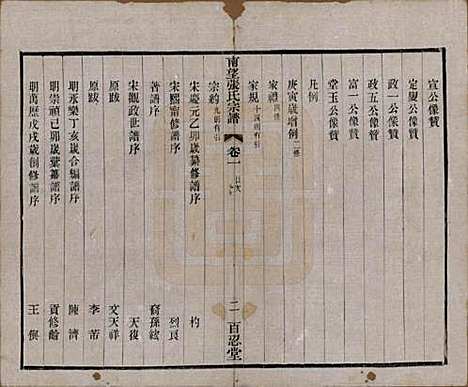 宣公像贊
定叟公像贊
政一公像贊
政五公像贊
富一公像贊
堂玉公像贊
凡例
庚寅歲增例 二條
家禮 四條
家規 十四則有引
南望張氏宗譜 卷一 目次 二 百忍堂
宗約 九則有引
宋慶元乙卯歲纂修譜序 杓
宋熙甯修譜序 烈良
著譜序 裔孫絃
宋觀政世譜序 天復
原跋 文天祥
原跋 李芾
明永樂丁亥歲合編譜序 陳濟
明崇禎己卯歲彙纂譜序 貢修齡
明萬歷戊戌歲創修譜序 王僎